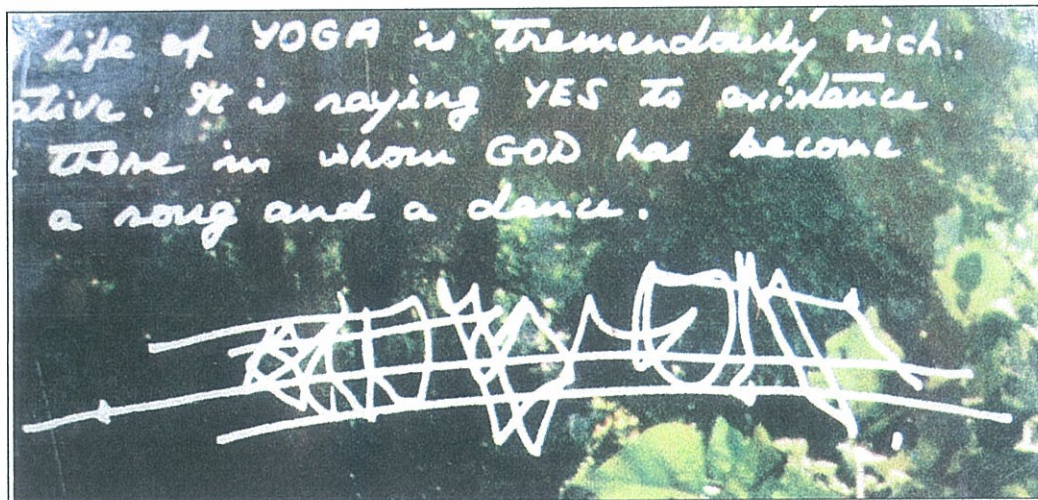 life of YOGA is tremendously rich.
ative. It is saying YES to existence.
those in whom GOD has become
a song and a dance.